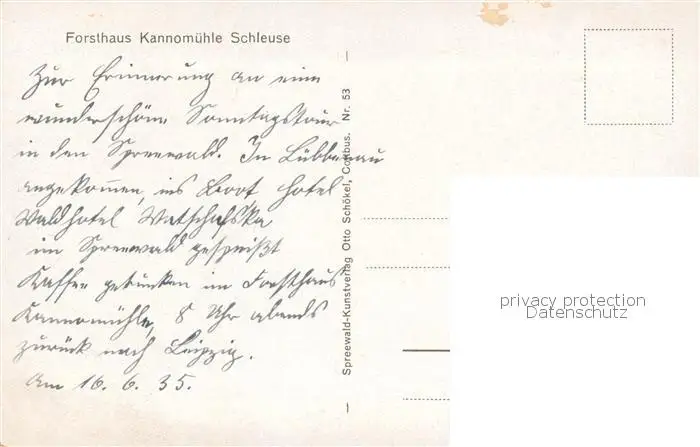 Forsthaus Kannomühle Schleuse
Zur Erinnerung an eine
wunderschöne Sonntagstour
in den Spreewald. In Lübbenau
angekommen, ins Boot Hotel
Waldhotel
im Spreewald gespeißt
Kaffee getrunken im Forsthaus
Kannomühle, 8 Uhr abends
zurück nach Leipzig.
Am 16. 6. 35.
Spreewald-Kunstverlag Otto Schökel, Cottbus. Nr. 53
privacy protection
Datenschutz